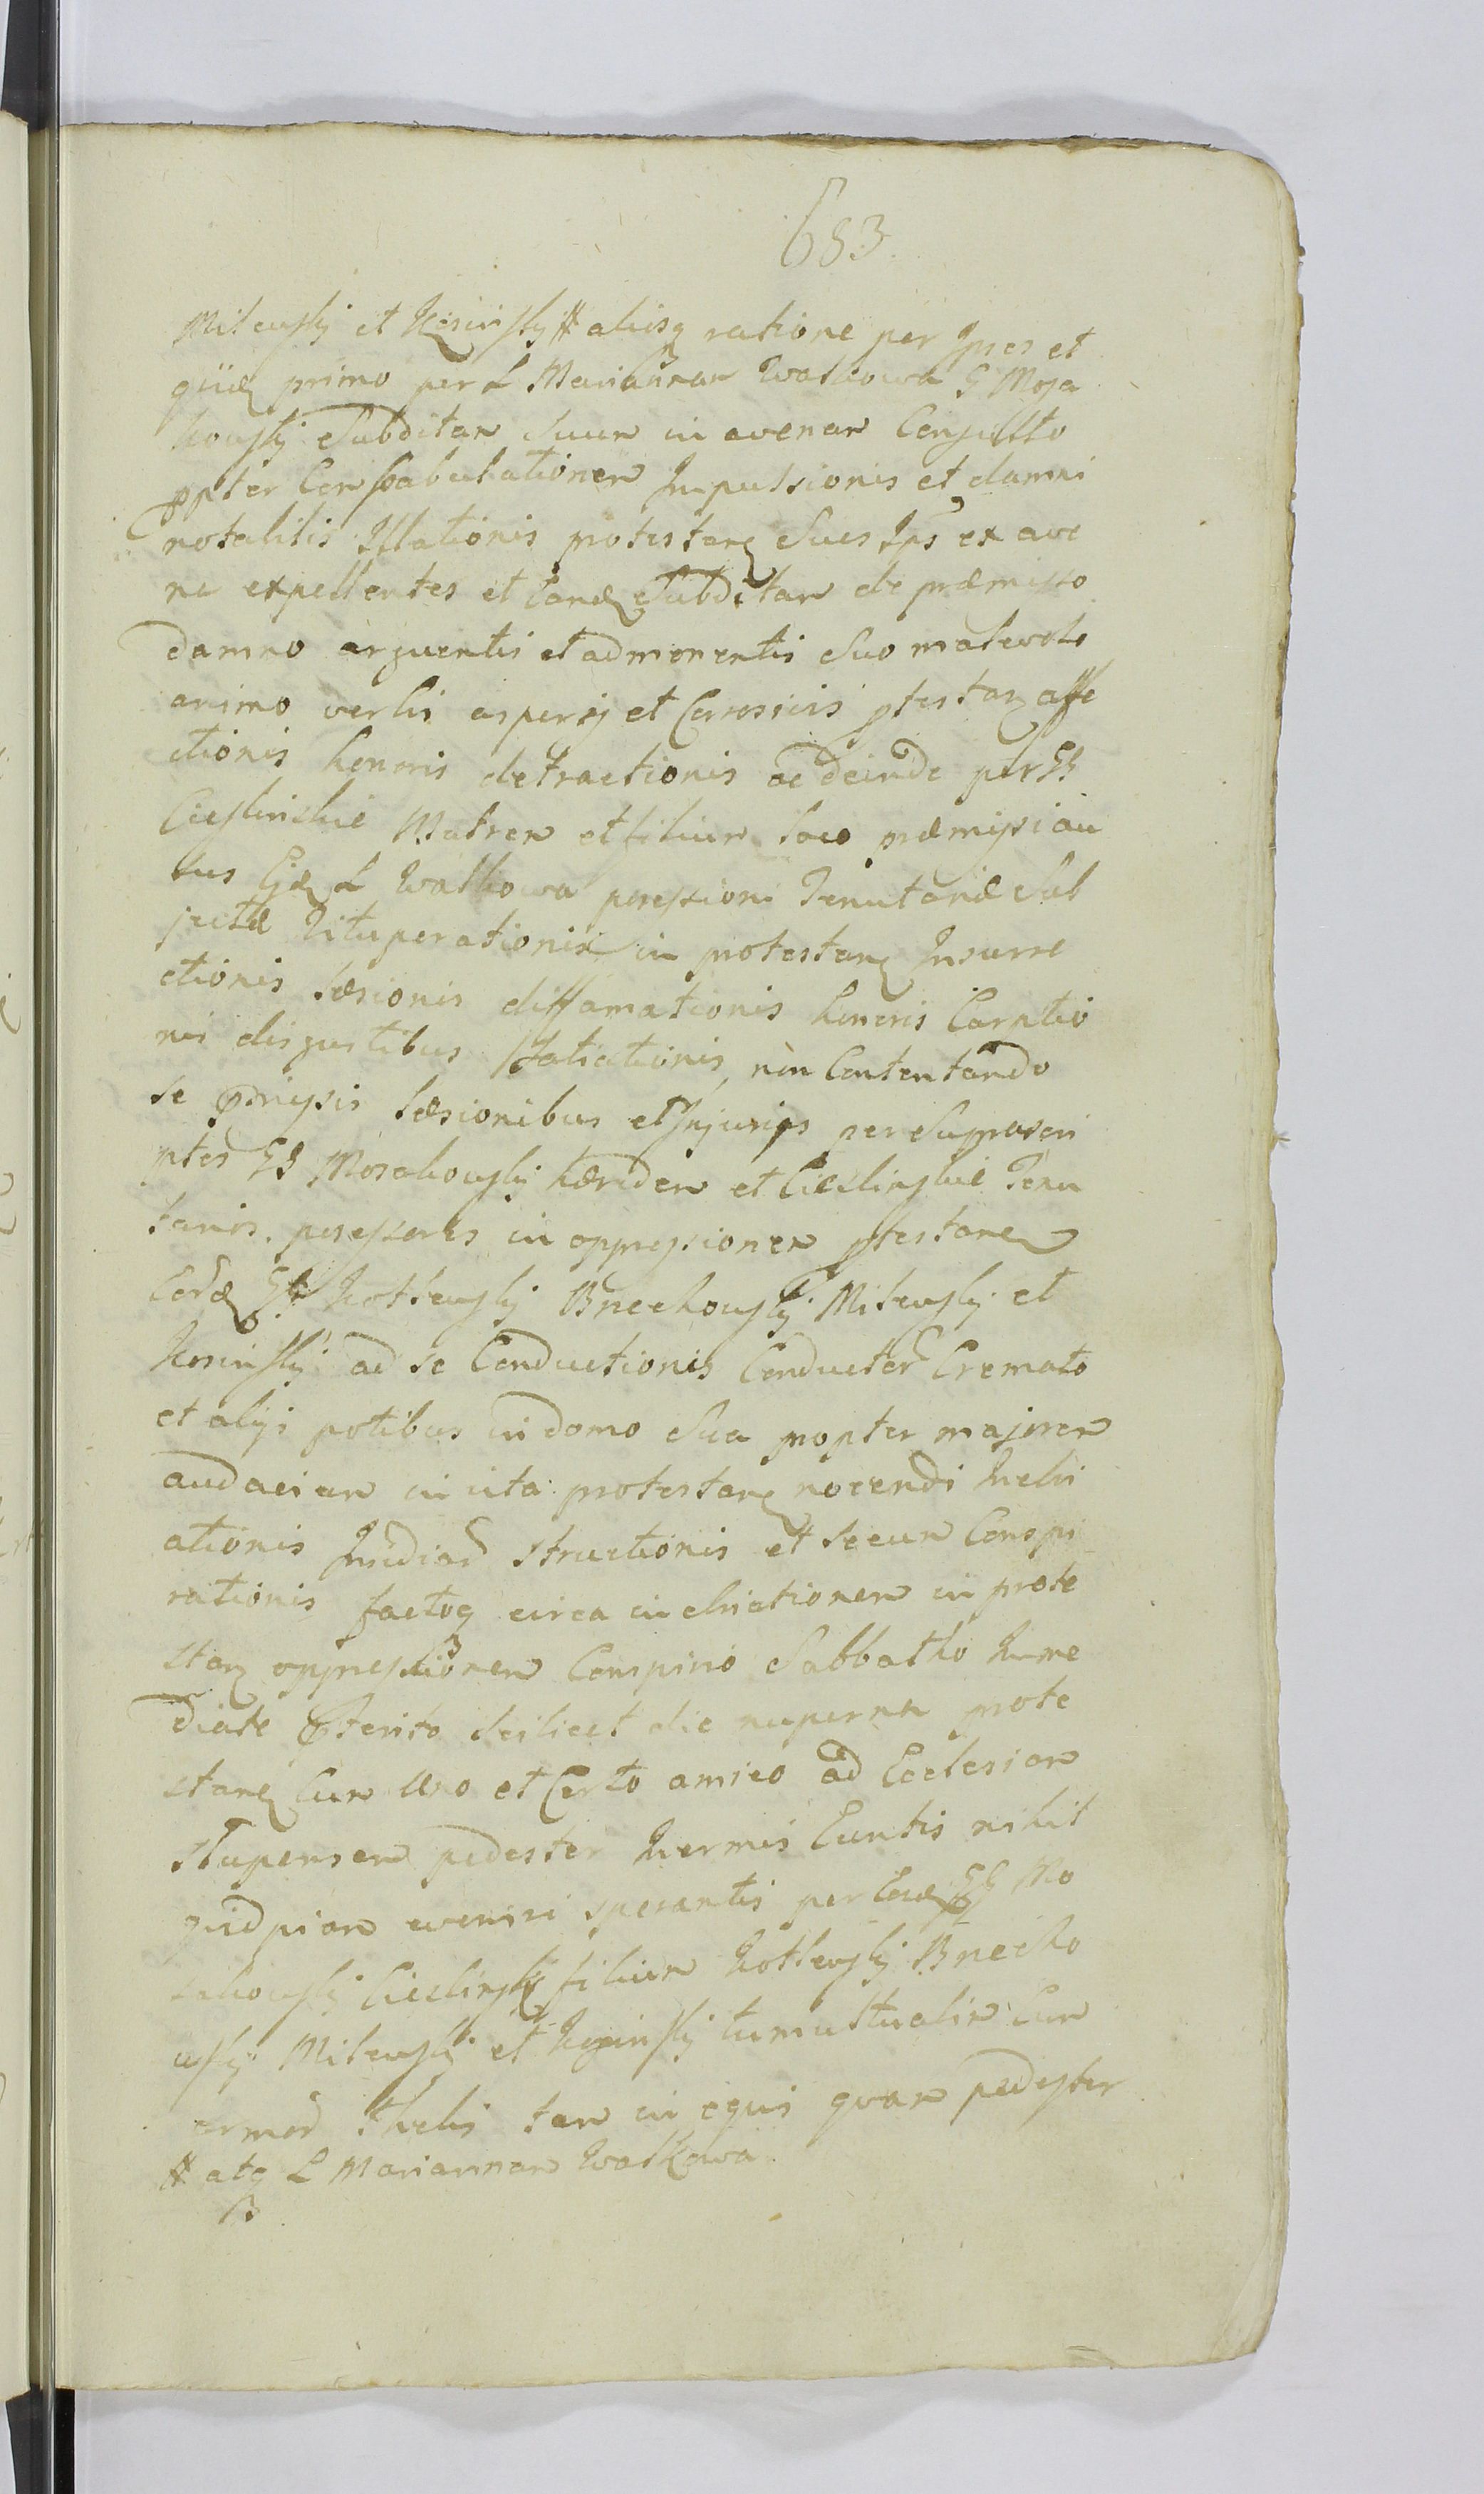 653.
Milewskij et Kosinskij # aliisq ratione per Ipsos et
quidem primo per L Mariannam Walkowa G Mosa
kowskij Subditam Suum in avenam Consulto
ppter Conpabulationem Impulsionis et damni
notabilis Illationis protestans Sues Ips ex ave
na expellentes et eandem Subditam de præmisso
damno arguentis et admonentis Suo malevolo
animo verbis asperis et Corrosivis ptestan affe
ctionis honoris detractionis ac deinde per GG
Cieslinskie Matrem et filium loco præmissi au
sus Ejusdem L Walkowa possessioni Tenutariæ Sub
jectæ Vituperationis in protestans Insurre
ctionis læsionis diffamationis honoris Carptio
nis disgustibus Satiationis, non Contentando
se præmissis læsionibus et Injuriis per Suprascri
ptos GG Mosakowskij hæredem et Cieslinskie Tenu
tarios possessores in oppressionem ptestans
Eosdem GG Kotlewskij Brzechowskij Milewskij et
Kosinskij ad se Conductionis Conductor Cremato
et alijs potibus in domo Sua propter majorem
audaciam in vita protestans nocendi Inebri
ationis Insidiar structionis et secum Conspi
rationis factoq circa inebriationem in prote
stan oppressionem Conspirio Sabbatho Imme
diate præterito scilicet die nuperna prote
stans Cum uno et Certo amico ad Ecclesiam
Stupensem pedester Inermis Euntis nihil
quidpiam evenire sperantis per Eosdem GG Mo
sakowskij Cieslinskij filium Kotlewskij Brzecho
wskij Milewskij et Kosinskij tumultualiter Cum
armor tam in equis quam pedester
# atq L Mariannam Walkowa